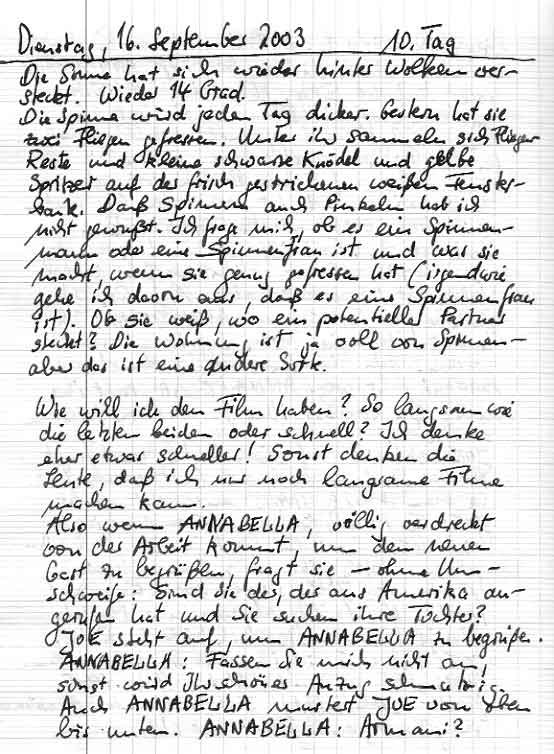 Dienstag, 16. September 2003 10. Tag
Die Sonne hat sich wieder hinter Wolken ver-
steckt. Wieder 14 Grad.
Die Spinne wird jeden Tag dicker. Gestern hat sie
zwei Fliegen gefressen. Unter ihr sammeln sich Fliegen-
Reste und kleine schwarze Knödel und gelbe
Spritzer auf der frisch gestrichenen weißen Fenster-
bank. Daß Spinnen auch Pinkeln hab ich
nicht gewußt. Ich frage mich, ob es ein Spinnen-
mann oder eine Spinnenfrau ist und was sie
macht, wenn sie genug gefressen hat (irgendwie
gehe ich davon aus, daß es eine Spinnenfrau
ist). Ob sie weiß, wo ein potentieller Partner
steckt? Die Wohnung ist ja voll von Spinnen-
aber das ist eine andere Sorte.
Wie will ich den Film haben? So langsam wie
die letzten beiden oder schnell? Ich denke
eher etwas schneller! Sonst denken die
Leute, daß ich nur noch langsame Filme
machen kann.
Also wenn ANNABELLA, völlig verdreckt
von der Arbeit kommt, um den neuen
Gast zu begrüßen, fragt sie – ohne Um-
schweife: Sind Sie der, der aus Amerika an-
gerufen hat und Sie suchen ihre Tochter?
JOE steht auf, um ANNABELLA zu begrüßen.
ANNABELLA: Fassen Sie mich nicht an,
sonst wird Ihr schönes Anzug schmutzig.
Auch ANNABELLA mustert JOE von oben
bis unten. ANNABELLA: Armani?